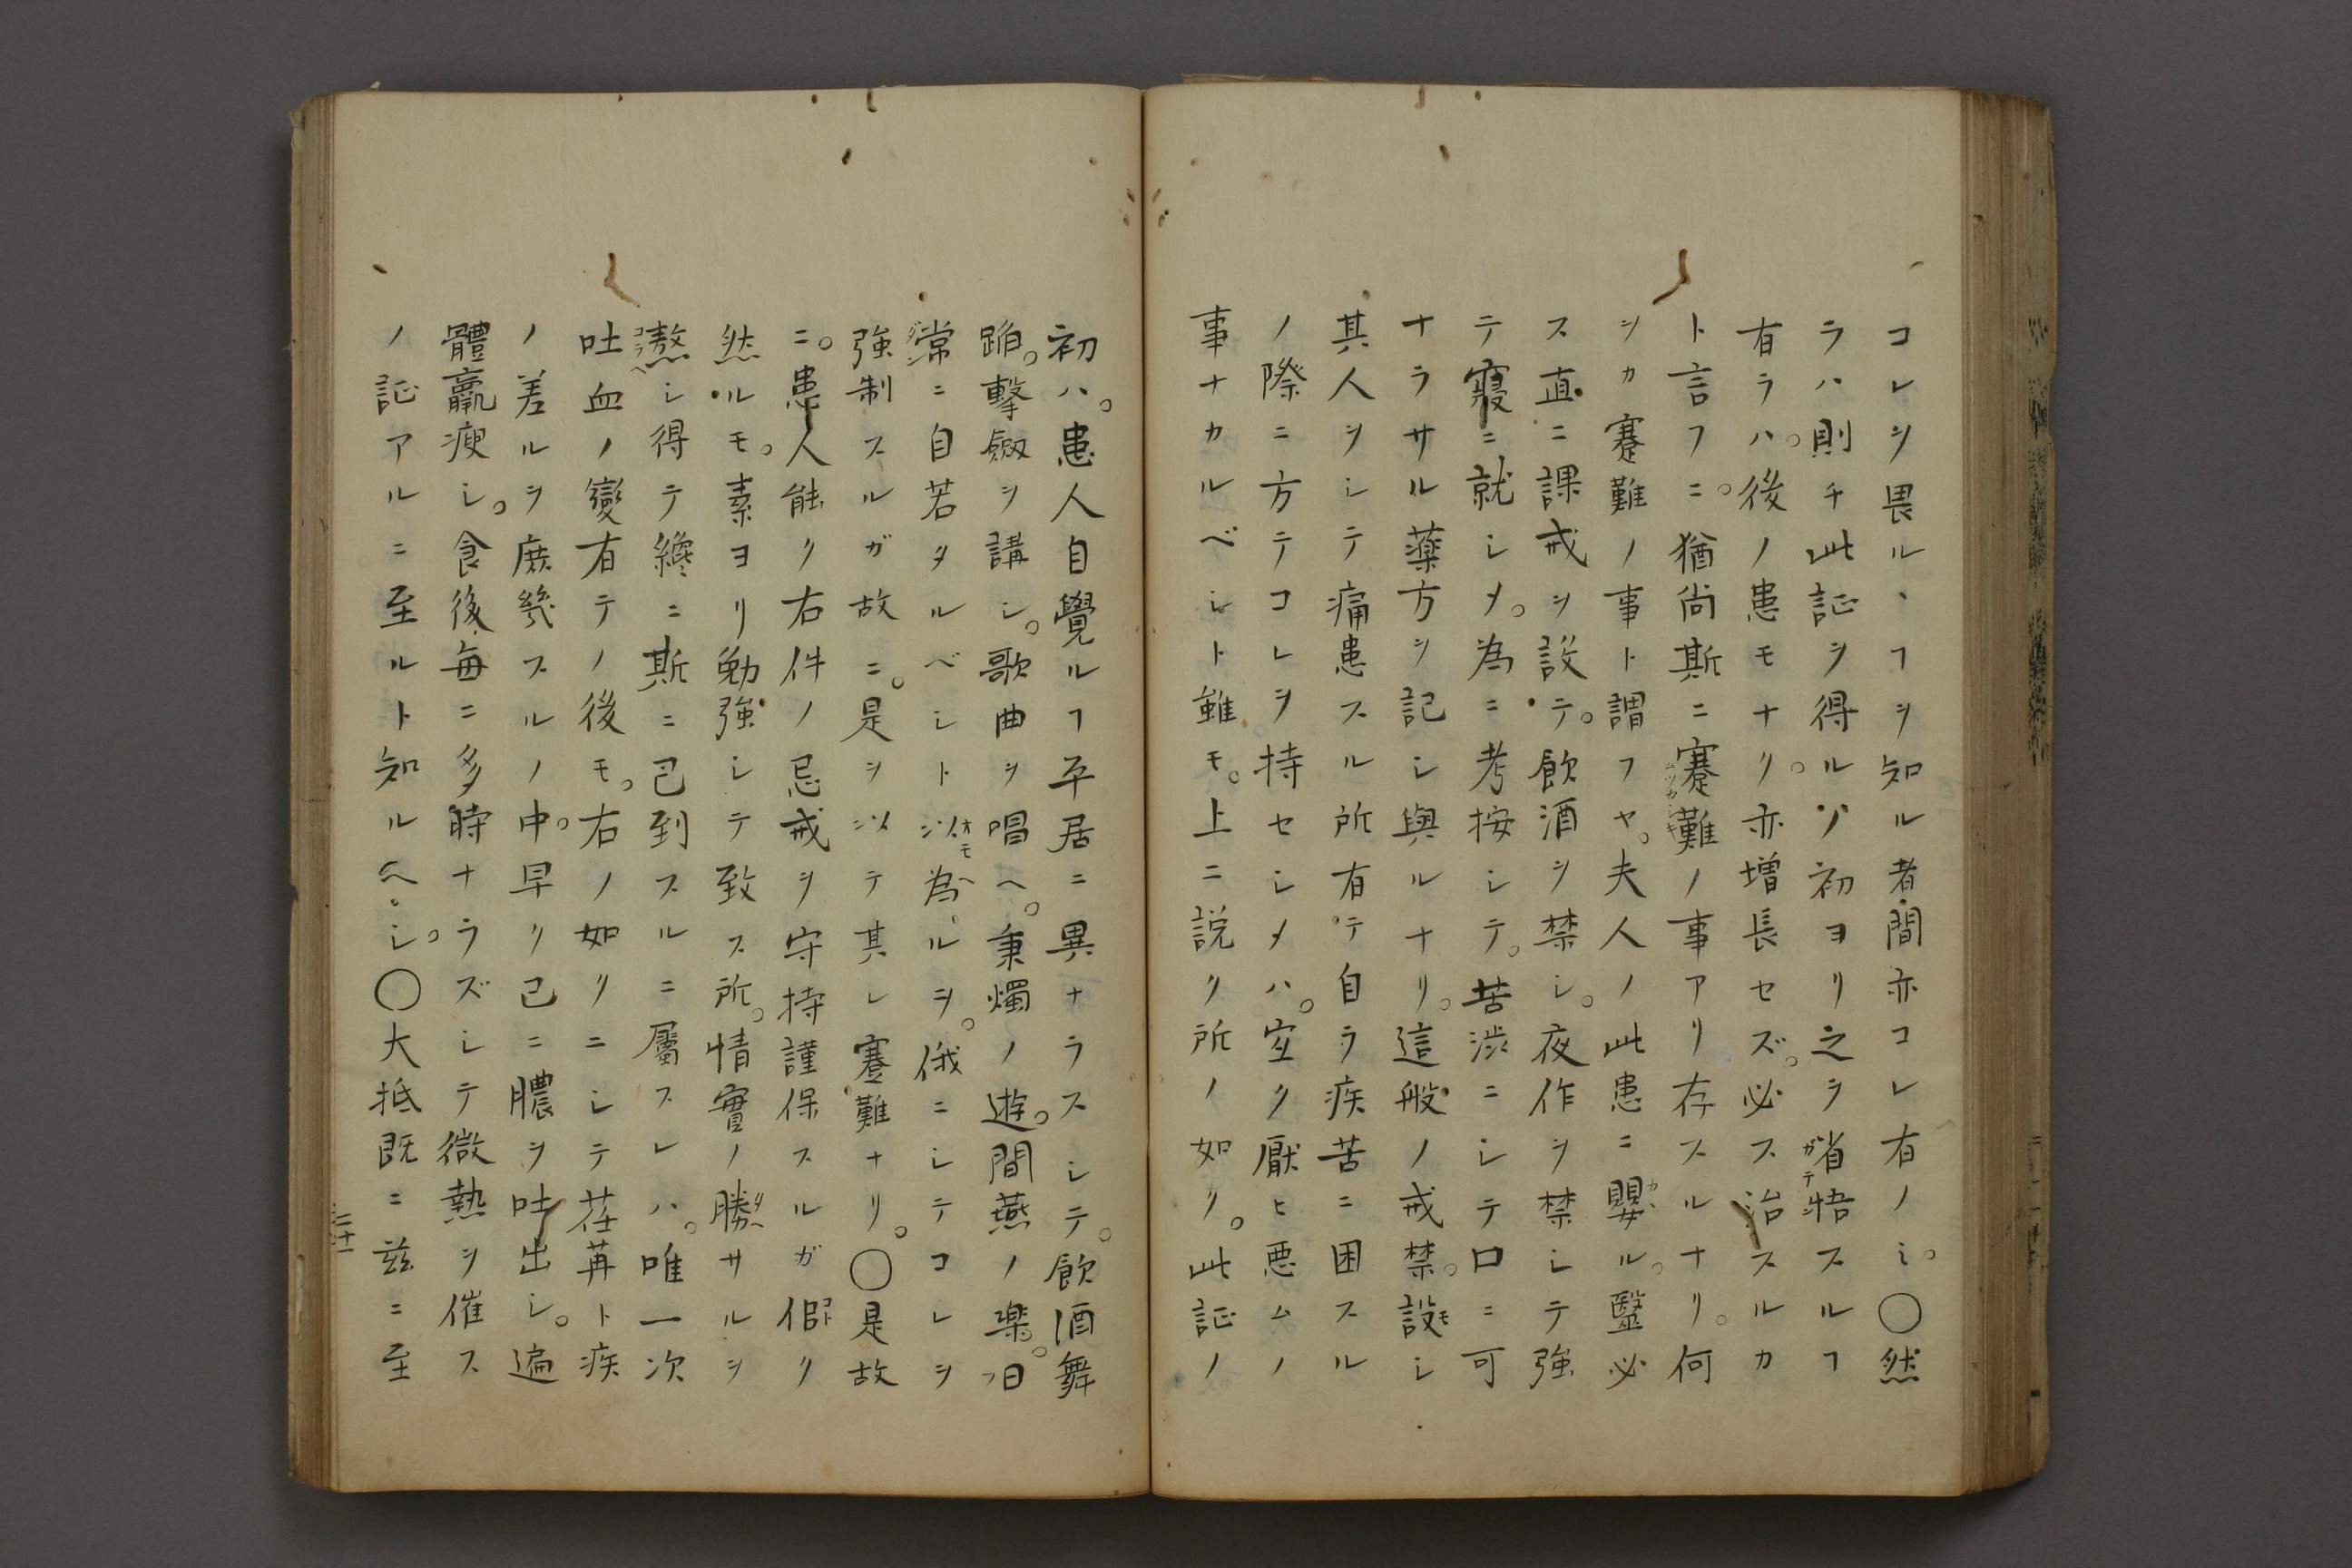 コレヲ畏ルヽヿヲ知ル者間亦コレ有ノミ。〇然
ラハ則チ此証ヲ得ルヤ初ヨリ之ヲ省悟スルヿ
有ラハ。後ノ患モナリ。亦増長セズ。必ス治スルカ
ト言フニ。猶尚斯ニ蹇難ノ事アリ存スルナリ。何
ヲカ蹇難ノ事ト謂フヤ。夫人ノ此患ニ嬰ル。醫必
ス直ニ課戒ヲ設テ。飲酒ヲ禁シ。夜作ヲ禁シテ強
テ寝ニ就シメ。為ニ考按シテ。苦渋ニシテ口ニ可
ナラサル薬方ヲ記シ與ルナリ。這般ノ戒禁。設モシ
其人ヲシテ痛患スル所有テ自ラ疾苦ニ困スル
ノ際ニ方テコレヲ持セシメハ。空ク厭ヒ悪ムノ
事ナカルベシト雖モ。上ニ説ク所ノ如ク。此証ノ
初ハ。患人自覺ルヿ平居ニ異ナラスシテ。飲酒舞
蹈。撃劔ヲ講シ。歌曲ヲ唱ヘ。秉燭ノ遊。間燕ノ樂。旧
常ニ自若タルベシト以為ルヲ。俄ニシテコレヲ
強制スルガ故ニ。是ヲ以テ其レ蹇難ナリ。〇是故
ニ。患人能ク右件ノ忌戒ヲ守持謹保スルガ𠍴ク
然ルモ。素ヨリ勉強シテ致ス所。情實ノ勝サルヲ
熬シ得テ纔ニ斯ニ已到スルニ屬スレハ。唯一次
吐血ノ變有テノ後モ。右ノ如クニシテ荏苒ト疾
ノ差ルヲ庶幾スルノ中。早ク已ニ膿ヲ吐出シ。遍
體羸痩シ。食後毎ニ多時ナラズシテ微熱ヲ催ス
ノ証アルニ至ルト知ルヘシ。〇大抵既ニ茲ニ至
二十一